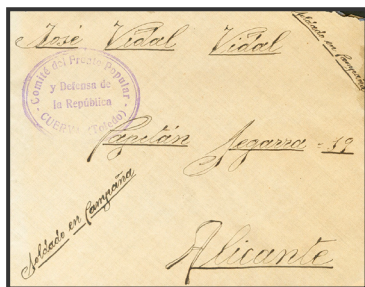 José Vidal Vidal
Soldado en Campaña
Comité del Frente Popular
y Defensa de
la República
CUERVA (Toledo)
Capitán Segarra - 19
Soldado en Campaña
Alicante